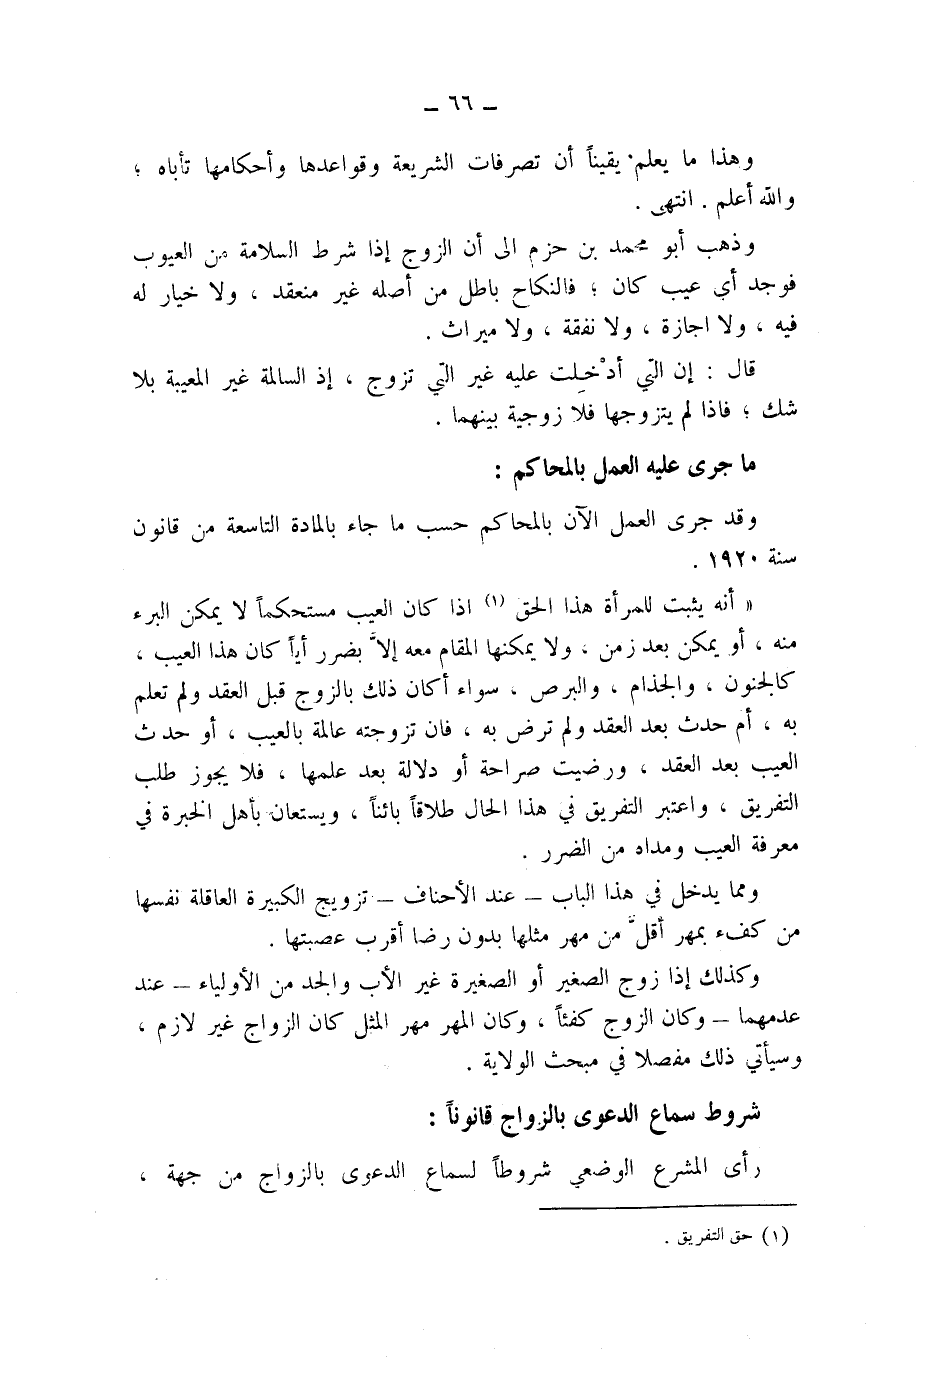 – ٦٦ –
وهذا ما يعلم يقيناً أن تصرفات الشريعة وقواعدها وأحكامها تأباه ؛
والله أعلم . انتهى .
وذهب أبو محمد بن حزم الى أن الزوج إذا شرط السلامة من العيوب
فوجد أي عيب كان ؛ فالنكاح باطل من أصله غير منعقد ، ولا خيار له
فيه ، ولا اجازة ، ولا نفقة ، ولا ميراث .
قال : إن التي أدْخِلت عليه غير التي تزوج ، إذ السالمة غير المعيبة بلا
شك ؛ فاذا لم يتزوجها فلا زوجية بينهما .
ما جرى عليه العمل بالمحاكم :
وقد جرى العمل الآن بالمحاكم حسب ما جاء بالمادة التاسعة من قانون
سنة ١٩٢٠ .
« أنه يثبت للمرأة هذا الحق (١) اذا كان العيب مستحكماً لا يمكن البرء
منه ، أو يمكن بعد زمن ، ولا يمكنها المقام معه إلاَّ بضرر أياً كان هذا العيب ،
كالجنون ، والجذام ، والبرص ، سواء أكان ذلك بالزوج قبل العقد ولم تعلم
به ، أم حدث بعد العقد ولم ترض به ، فان تزوجته عالمة بالعيب ، أو حدث
العيب بعد العقد ، ورضيت صراحة أو دلالة بعد علمها ، فلا يجوز طلب
التفريق ، واعتبر التفريق في هذا الحال طلاقاً بائناً ، ويستعان بأهل الخبرة في
معرفة العيب ومداه من الضرر .
ومما يدخل في هذا الباب – عند الأحناف – تزويج الكبيرة العاقلة نفسها
من كفء بمهر أقلَّ من مهر مثلها بدون رضا أقرب عصبتها .
وكذلك إذا زوج الصغير أو الصغيرة غير الأب والجد من الأولياء – عند
عدمهما – وكان الزوج كفئاً ، وكان المهر مهر المثل كان الزواج غير لازم ،
وسيأتي ذلك مفصلا في مبحث الولاية .
شروط سماع الدعوى بالزواج قانوناً :
رأى المشرع الوضعي شروطاً لسماع الدعوى بالزواج من جهة ،
(١) حق التفريق .